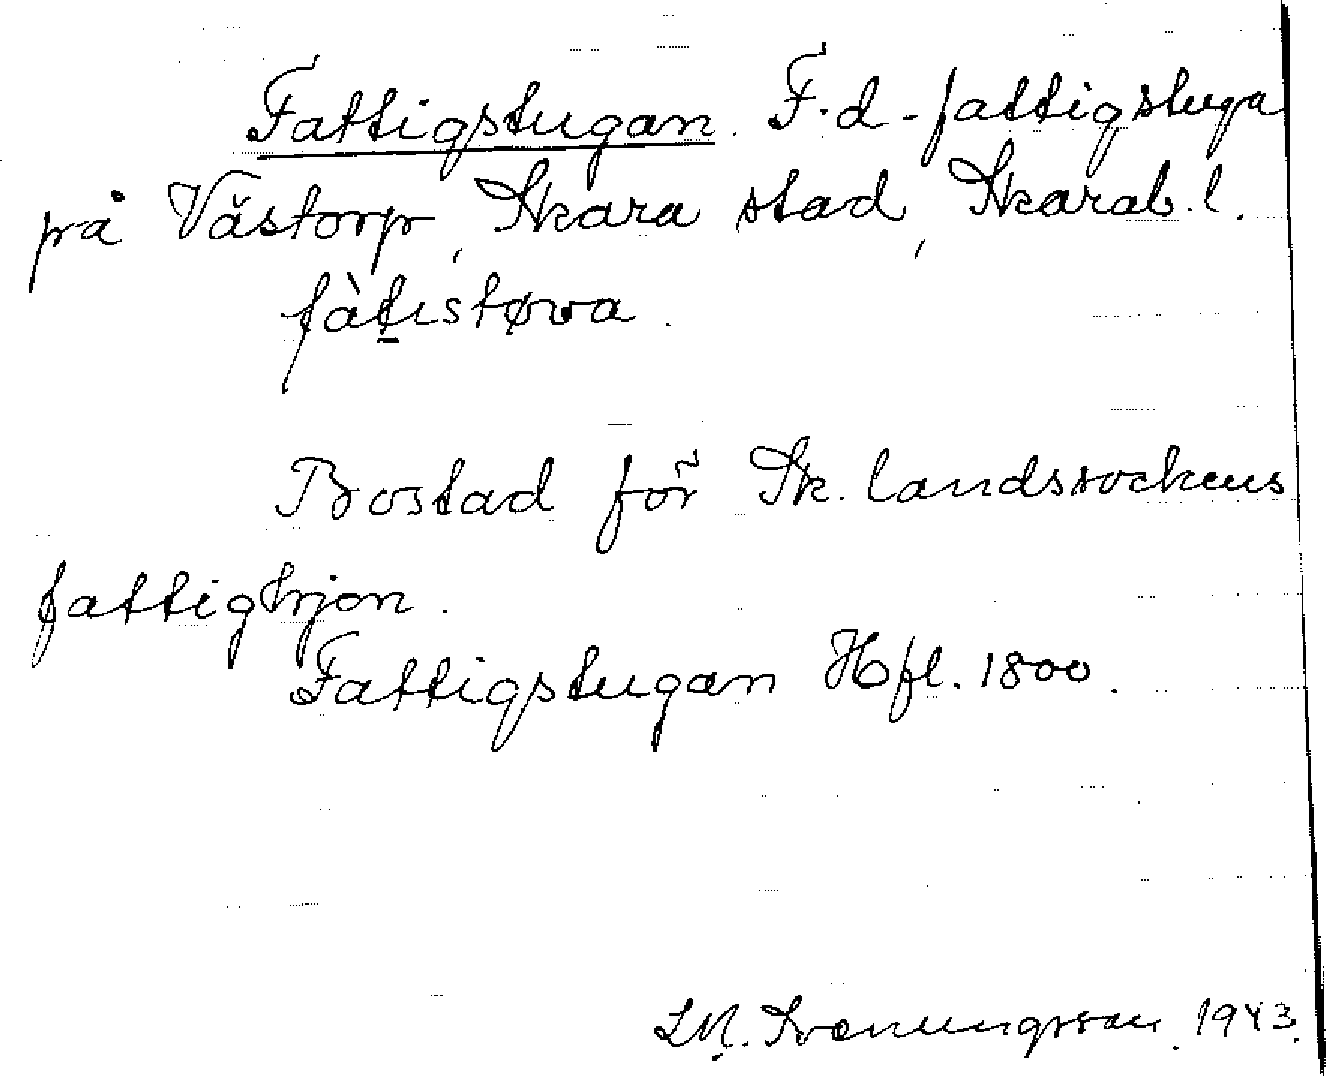 Fattigstugan. F.d. fattigstuga
på Västorp, Skara stad, Skarab. l.
fàt̲ɪstøva.
Bostad för Sk. landssockens
fattighjon.
Fattigstugan Hfl. 1800.
Svenungsson. 1943.